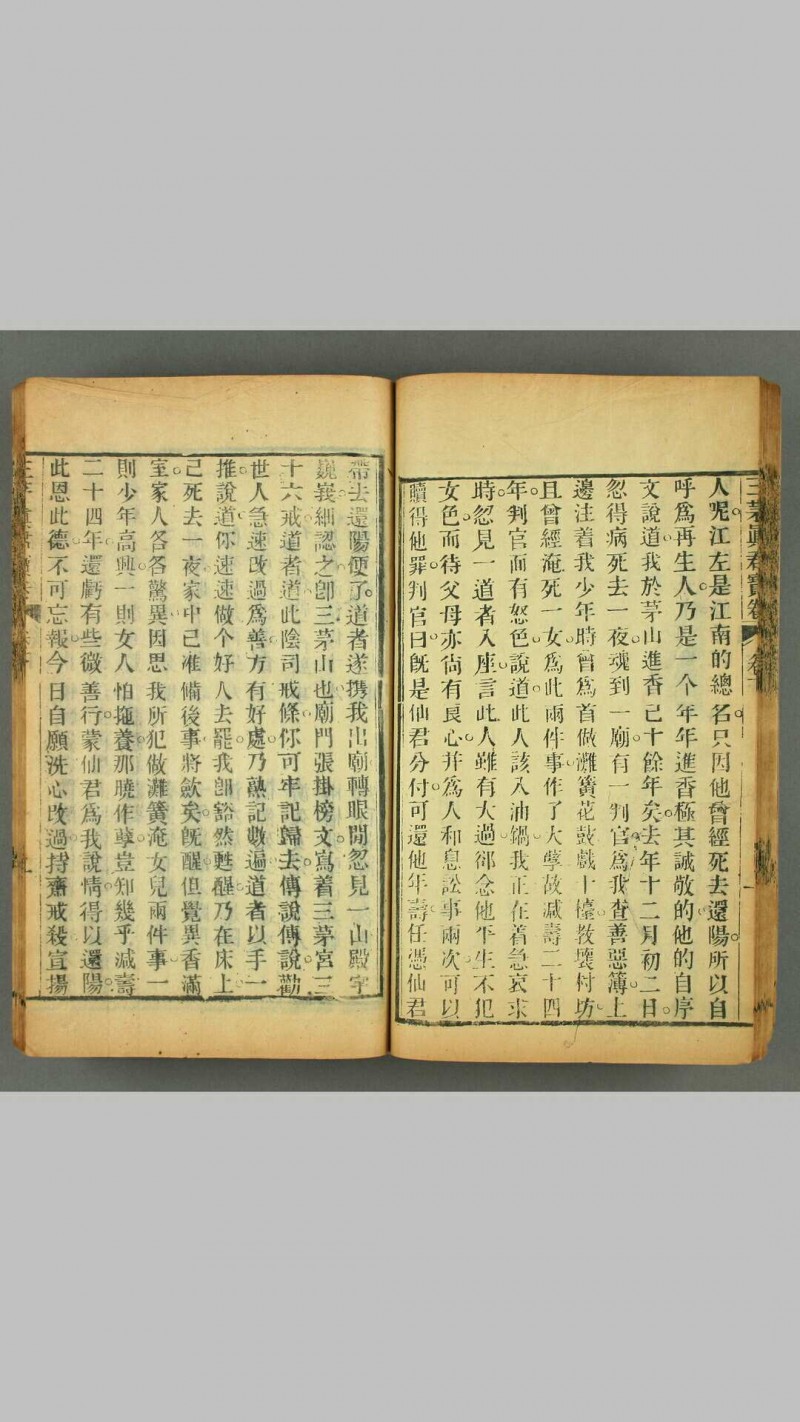 三茅眞君寶卷
人呢江左是江南的總名只因他曾經死去還陽所以自
呼爲再生人乃是一个年年進香極其誠敬的他的自序
文說道我於茅山進香已十餘年矣去年十二月初二日
忽得病死去一夜魂到一廟有一判官爲我查善惡簿上
邊注着我少年時曾爲首做灘簧花鼓戲十檯教壞村坊
且曾經淹死一女爲此兩件事作了大孽故減壽二十四
年判官面有怒色說道此人該入油鍋我正在着急哀求
時忽見一道者入座言此人雖有大過卻念他平生不犯
女色而待父母亦尙有良心并爲人和息訟事兩次可以
贖得他罪判官曰旣是仙君分付可還他年壽任憑仙君
帶去還陽便了道者遂携我出廟轉眼間忽見一山殿宇
巍峩細認之卽三茅山也廟門張掛榜文寫着三茅宮三
十六戒道者道此陰司戒條你可牢記歸去傳說傳說勸
世人急速改過爲善方有好處乃熟記數遍道者以手一
推說道你速速做个好人去罷我卽豁然甦醒乃在床上
己死去一夜家中已准備後事將歛矣旣醒但覺異香滿
室家人各各驚異因思我所犯做灘簧淹女兒兩件事一
則少年高興一則女人怕𢹂養那曉作孽豈知幾乎減壽
二十四年還虧有些微善行蒙仙君爲我說情得以還陽
此恩此德不可忘報今日自願洗心改過持齋戒殺宣揚